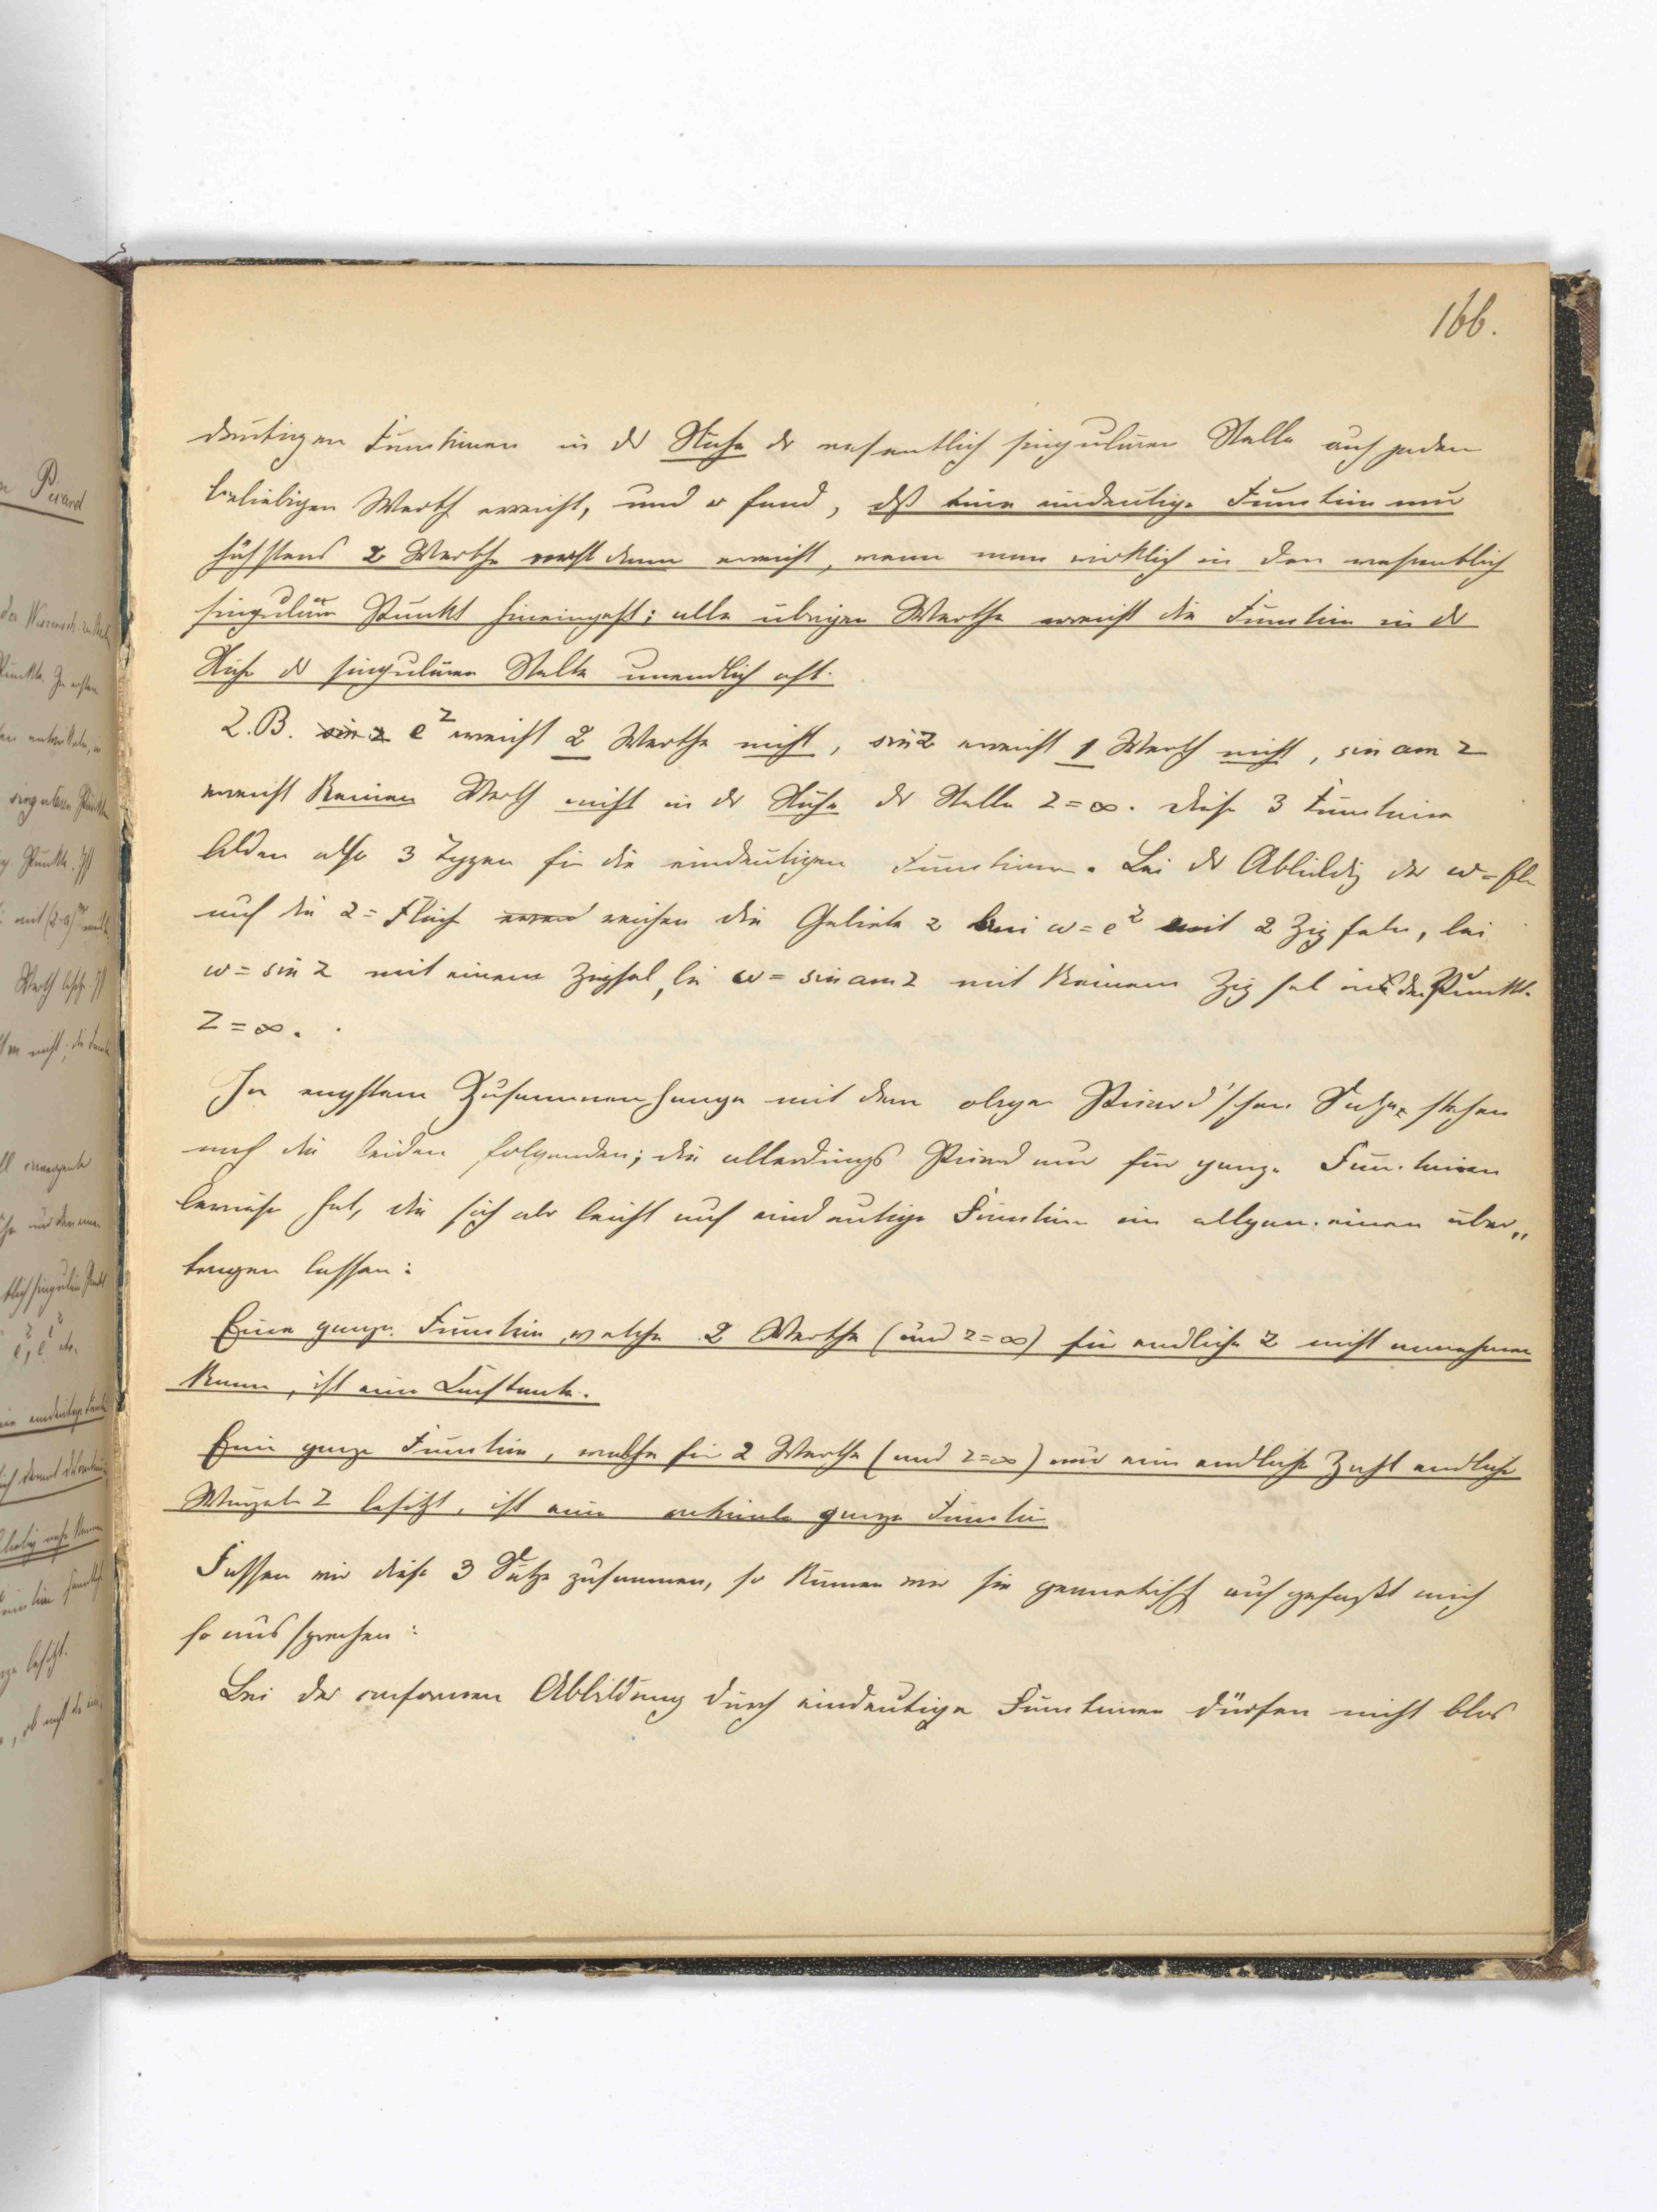 166.
deutigen Functionen in der Nähe der wesentlich singulären Stelle auch jeden
beliebigen Werth erreicht, und er fand, dß eine eindeutige Function nur
höchstens 2 Werthe nicht dann erreicht, wenn man wirklich in den wesentlich
singulären Punkt hineingeht; alle übrigen Werthe erreicht die Function in der
Nähe der singulären Stelle unendlich oft.
Z.B. sin z e^z erreicht 2 Werthe nicht, sin z erreicht 1 Werth nicht, sin am z
erreicht keinen Werth nicht in der Nähe der Stelle z = ∞. Diese 3 Functionen
bilden also 3 Typen für die eindeutigen Functionen. Bei der Abbildg der w = Fl
auf die z = Fläche reichen die Gebiete z bei w = e^z mit 2 Zipfeln, bei
w = sin z mit einem Zipfel, bei w = sin am z mit keinem Zipfel in den Punkt
z = ∞.
In engstem Zusammenhange mit dem obigen Picard'schen Satze stehen
noch die beiden folgenden; die allerdings Picard nur für ganze Functionen
bewiesen hat, die sich aber leicht auf eindeutige Function im allgemeinen über„
tragen lassen:
Eine ganze Function, welche 2 Werthe (und z = ∞) für endliche z nicht annehmen
kann, ist eine Constante.
Eine ganze Function, welche für 2 Werthe (und z = ∞) nur eine endliche Zahl endlicher
Wurzeln z besitzt, ist eine rationale ganze Function
Fassen wir diese 3 Sätze zusammen, so können wir sie geometrisch aufgefaßt auch
so aussprechen:
Bei der conformen Abbildung durch eindeutige Functionen dürfen nicht blos